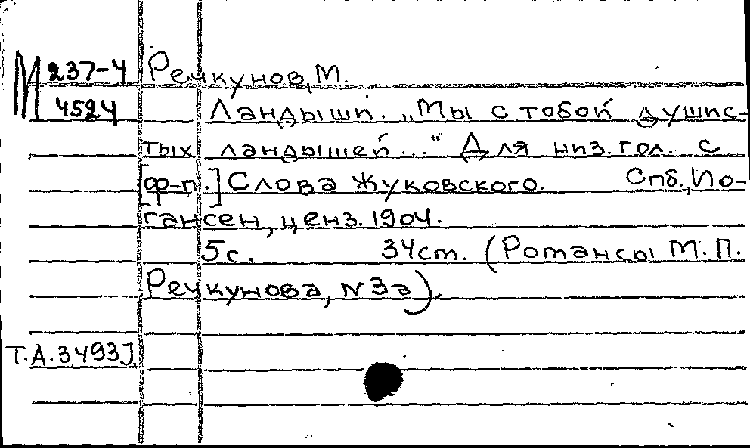 М 237-4 Речкунов, М.
4524 Ландыши. „Мы с тобой душис-
тых ландышей..." Для низ. гол. с
[ф-п.] Слова Жуковского. Спб., Ио-
гансен, ценз. 1904.
5с. 34см. (Романсы М. П.
Речкунова, N 3а).